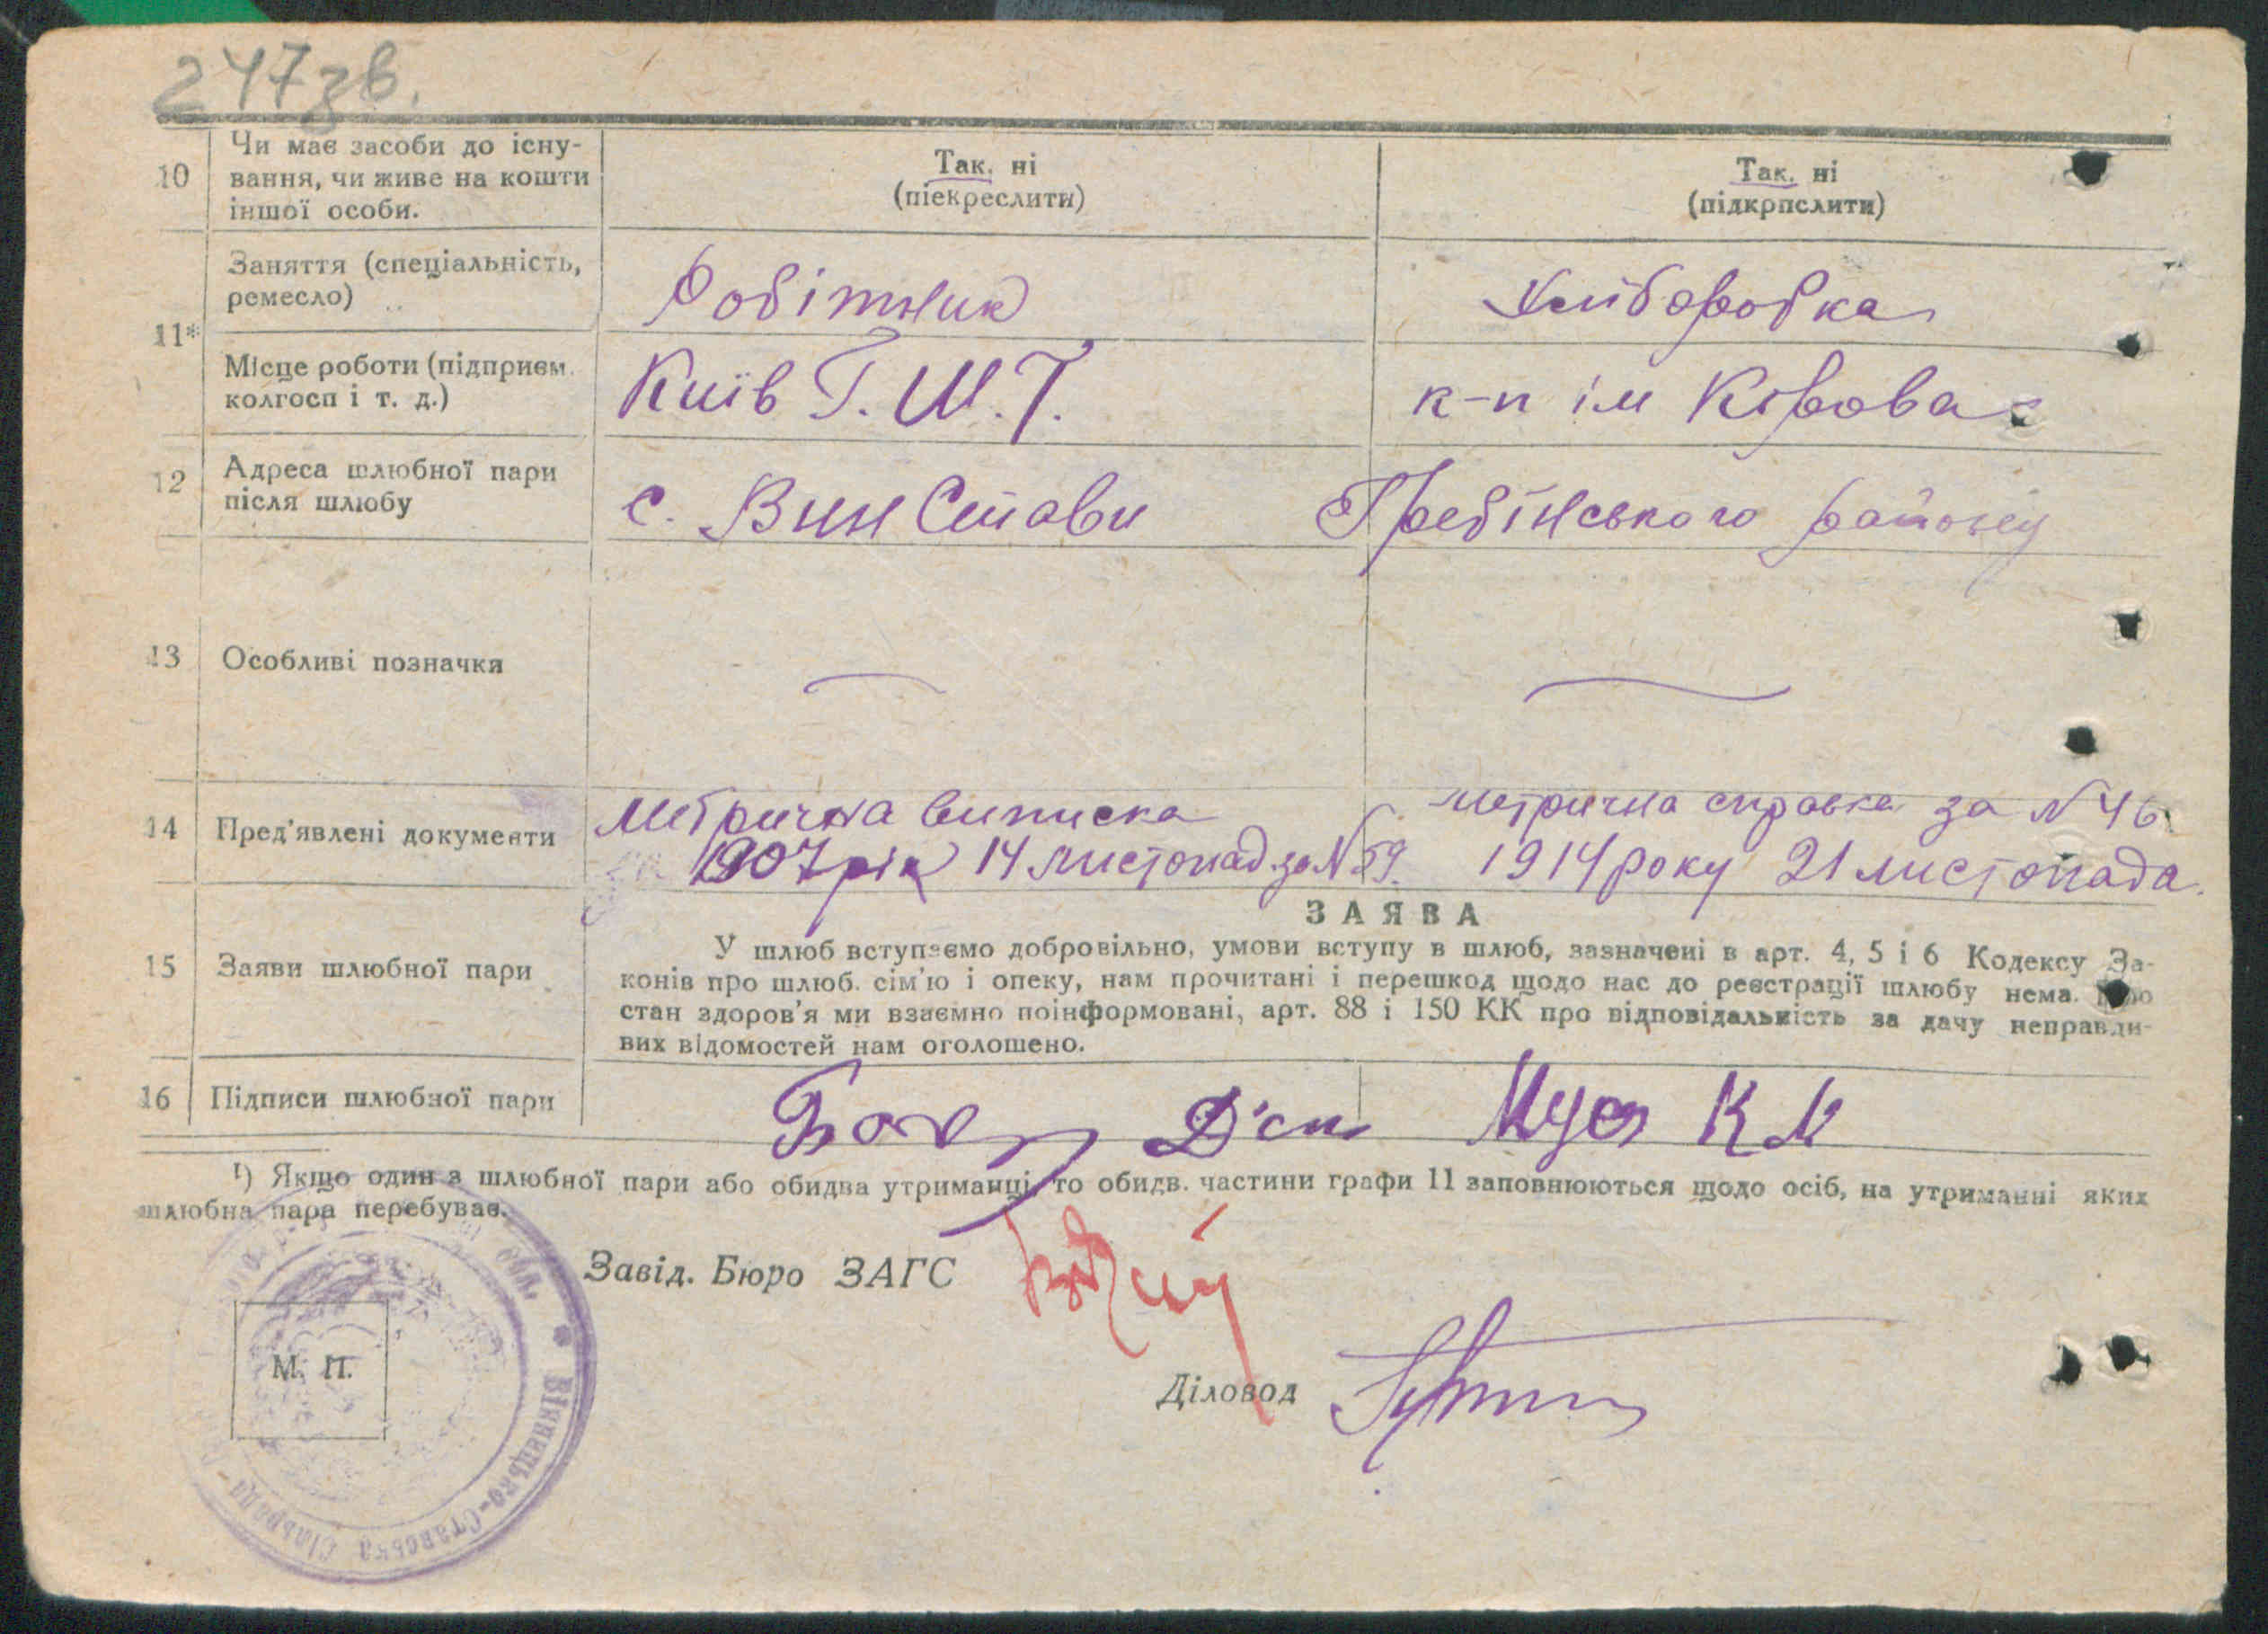 247зв.
10 Чи має засоби до існу- Так. ні Так. ні
вання, чи живе на кошти (піекреслити) (підкрпслити)
іншої особи.
11* Заняття (спеціальність, Робітник Хліборобка
ремесло)
Місце роботи (підприєм. Київ Г. Ш. Т. к-п ім Кірова
колгосп і т. д.)
12 Адреса шлюбної пари с. Вин Стави Гребінського району
після шлюбу
13 Особливі позначки
14 Пред'явлені документи Метрична виписка метрична справка за N 46
1907 рік 14 листопад за N 59. 1914 року 21 листопада.
ЗАЯВА
15 Заяви шлюбної пари У шлюб вступаємо добровільно, умови вступу в шлюб, зазначені в арт. 4, 5 і 6 Кодексу За-
конів про шлюб. сім'ю і опеку, нам прочитані і перешкод щодо нас до реєстрації шлюбу нема. Про
стан здоров'я ми взаємно поінформовані, арт. 88 і 150 КК про відповідальність за дачу неправди-
вих відомостей нам оголошено.
16 Підписи шлюбної пари К М
¹) Якщо один з шлюбної пари або обидва утриманці, то обидв. частини графи 11 заповнюються щодо осіб, на утриманні яких
шлюбна пара перебуває.
Завід. Бюро ЗАГС
М. П.
Діловод
Вінницько-Ставська Сільрада